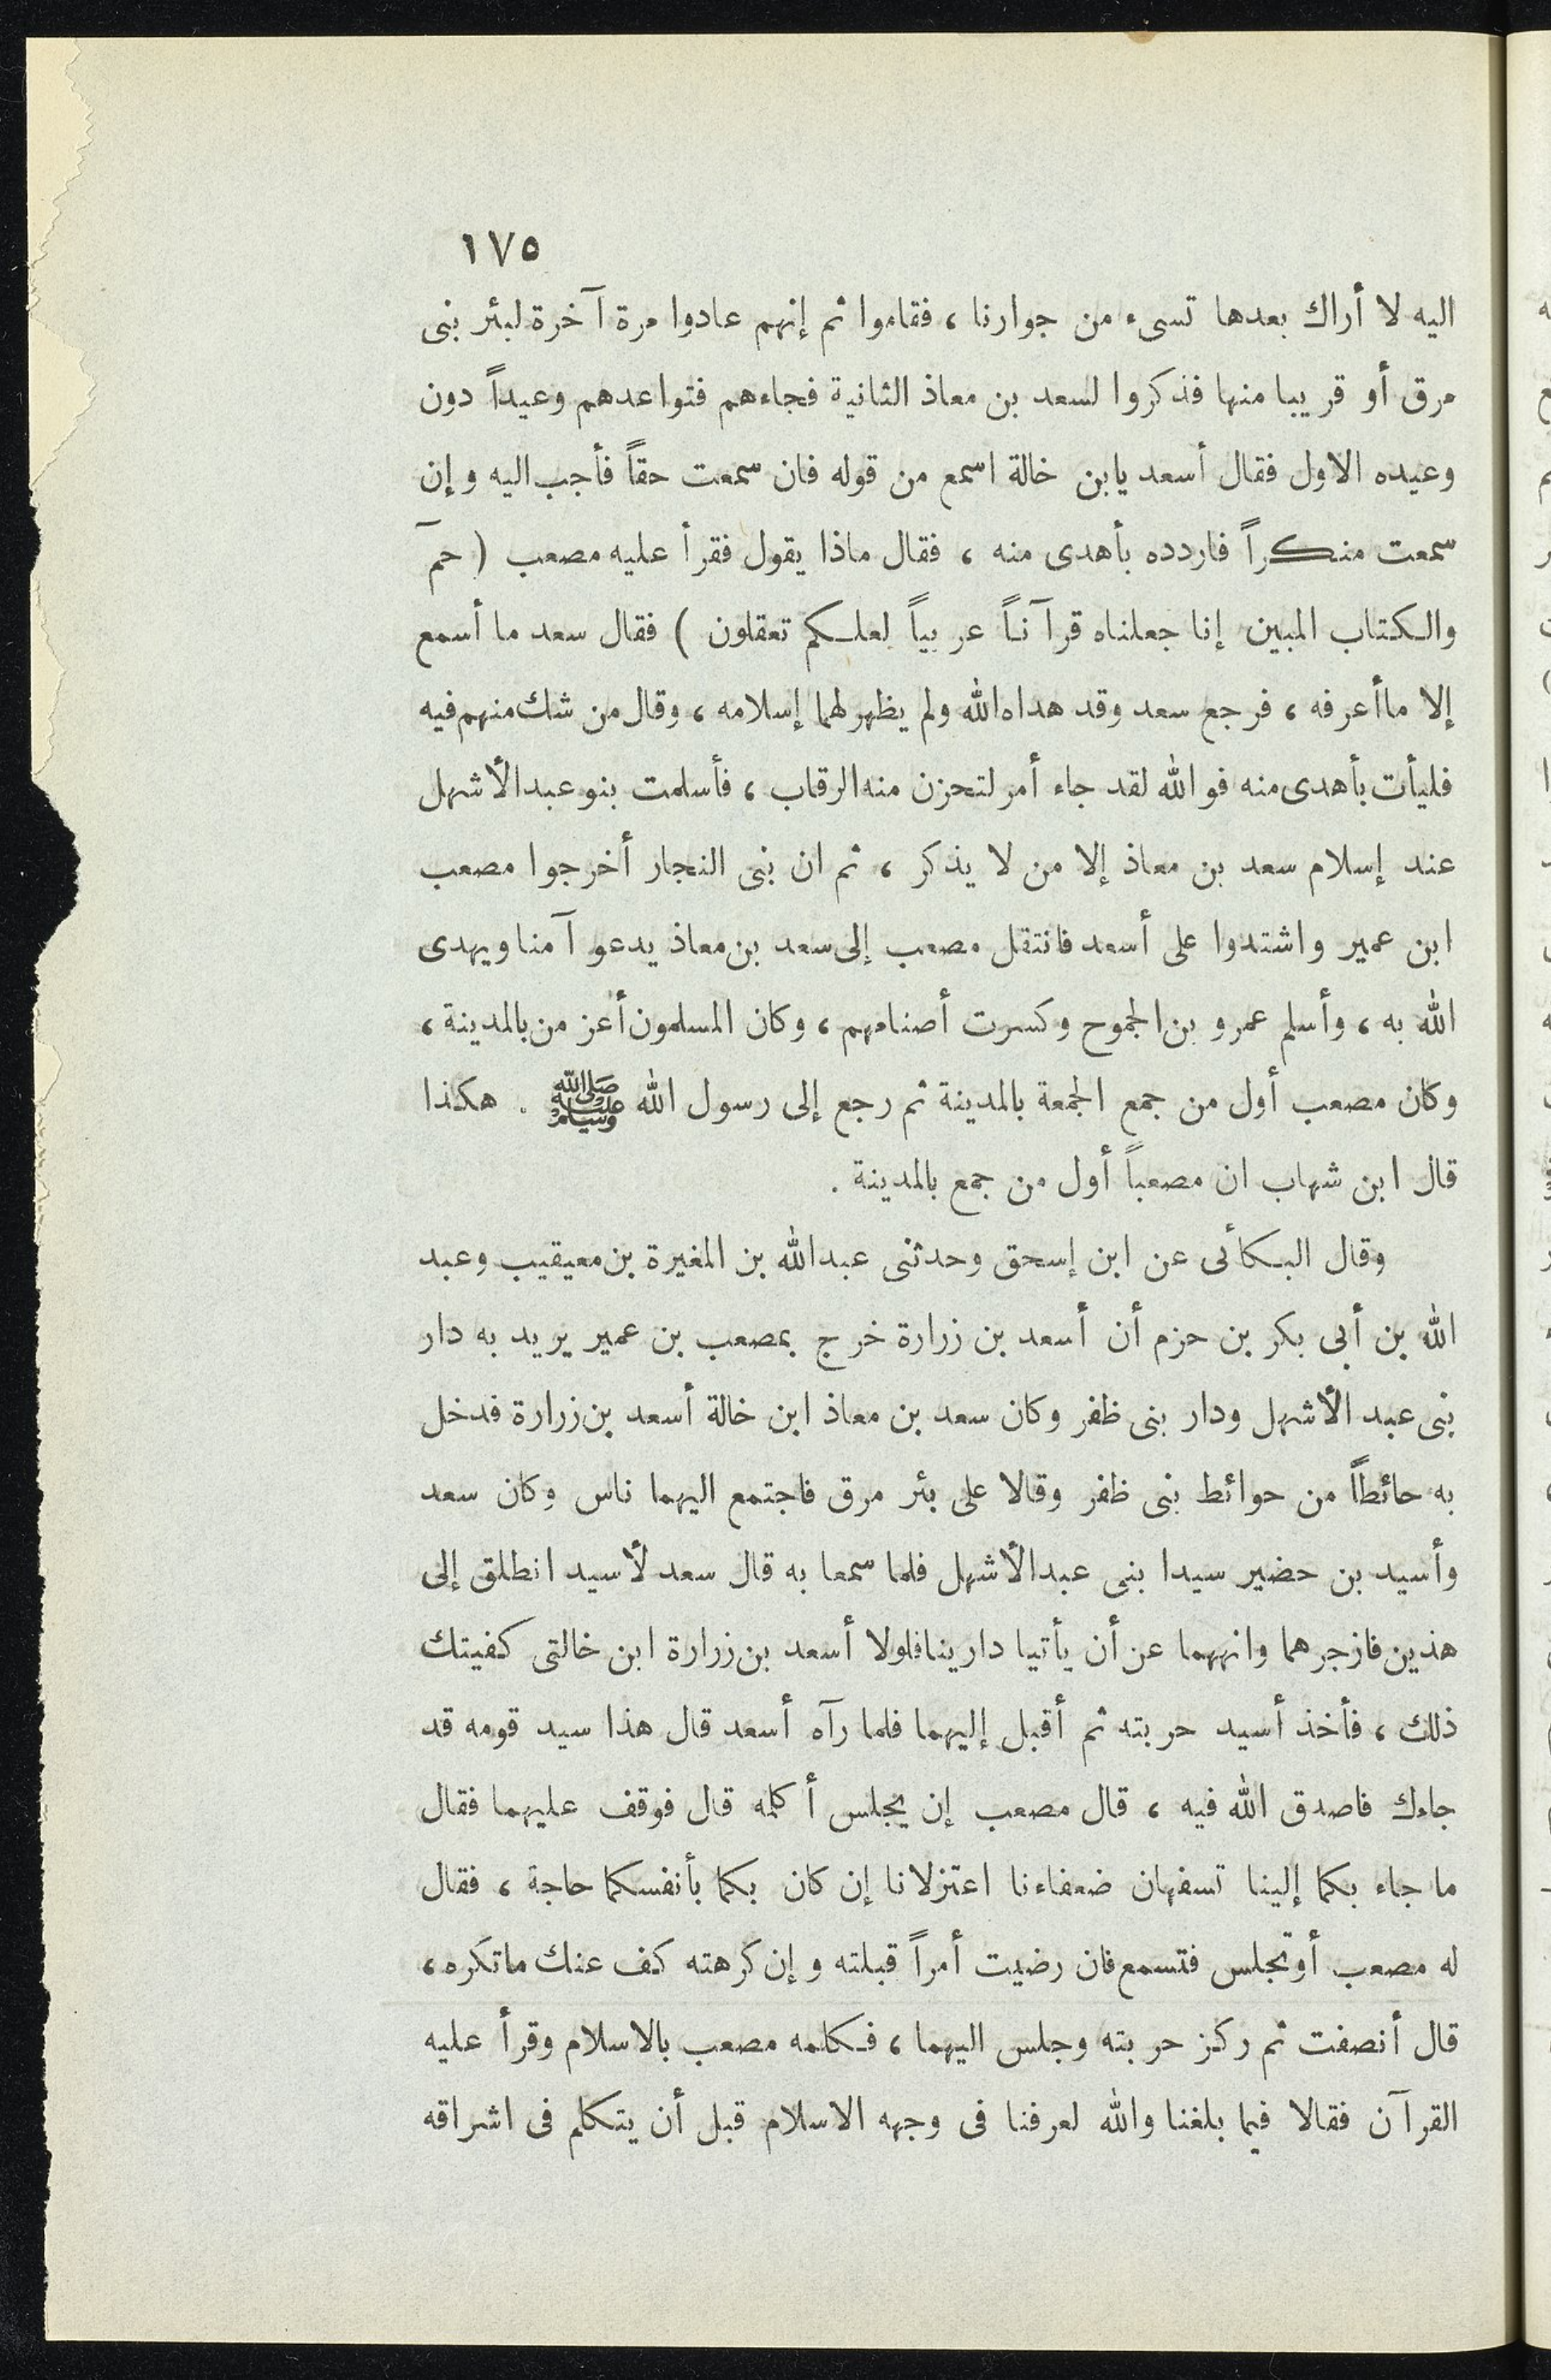 ١٧٥
اليه لا أراك بعدها تسىء من جوارنا ، فقاموا ثم إنهم عادوا مرة آخرة لبئر بنى
مرق أو قريبا منها فذكروا لسعد بن معاذ الثانية فجاءهم فتواعدهم وعيداً دون
وعيده الاول فقال أسعد يابن خالة اسمع من قوله فان سمعت حقاً فأجب اليه وإن
سمعت منكراً فاردده بأهدى منه ، فقال ماذا يقول فقرأ عليه مصعب ( حمٓ
والكتاب المبين إنا جعلناه قرآناً عربياً لعلكم تعقلون ) فقال سعد ما أسمع
إلا ما أعرفه ، فرجع سعد وقد هداه الله ولم يظهر لهما إسلامه ، وقال من شك منهم فيه
فليأت بأهدى منه فوالله لقد جاء أمر لتحزن منه الرقاب ، فأسلمت بنو عبد الأشهل
عند إسلام سعد بن معاذ إلا من لا يذكر ، ثم ان بنى النجار أخرجوا مصعب
ابن عمير واشتدوا على أسعد فانتقل مصعب إلى سعد بن معاذ يدعو آمنا ويهدى
الله به ، وأسلم عمرو بن الجموح وكسرت أصنامهم ، وكان المسلمون أعز من بالمدينة ،
وكان مصعب أول من جمع الجمعة بالمدينة ثم رجع إلى رسول الله ﷺ . هكذا
قال ابن شهاب ان مصعباً أول من جمع بالمدينة .
وقال البكائى عن ابن إسحق وحدثنى عبدالله بن المغيرة بن معيقيب وعبد
الله بن أبى بكر بن حزم أن أسعد بن زرارة خرج بمصعب بن عمير يريد به دار
بنى عبد الأشهل ودار بنى ظفر وكان سعد بن معاذ ابن خالة أسعد بن زرارة فدخل
به حائطاً من حوائط بنى ظفر وقالا على بئر مرق فاجتمع اليهما ناس وكان سعد
وأسيد بن حضير سيدا بنى عبدالأشهل فلما سمعا به قال سعد لأسيد انطلق إلى
هذين فازجرهما وانههما عن أن يأتيا دارينا فلولا أسعد بن زرارة ابن خالتى كفيتك
ذلك ، فأخذ أسيد حربته ثم أقبل إليهما فلما رآه أسعد قال هذا سيد قومه قد
جاءك فاصدق الله فيه ، قال مصعب إن يجلس أكلمه قال فوقف عليهما فقال
ما جاء بكما إلينا تسفهان ضعفاءنا اعتزلانا إن كان بكما بأنفسكما حاجة ، فقال
له مصعب أوتجلس فتسمع فان رضيت أمراً قبلته وإن كرهته كف عنك ماتكره ،
قال أنصفت ثم ركز حربته وجلس اليهما ، فكلمه مصعب بالاسلام وقرأ عليه
القرآن فقالا فيما بلغنا والله لعرفنا فى وجهه الاسلام قبل أن يتكلم فى اشراقه